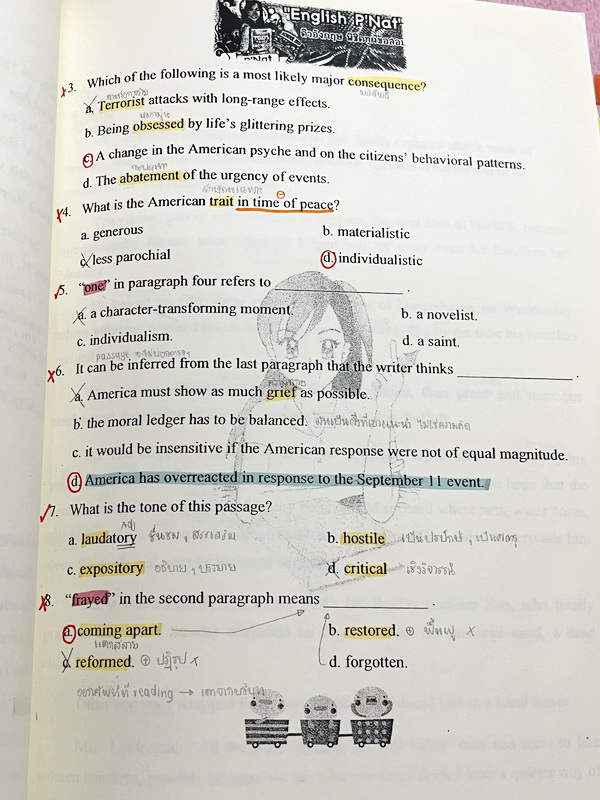 "English P'Nat"
ติวอังกฤษ พิชิตทุกข้อสอบ
P'Nat
3. Which of the following is a most likely major consequence?
a. Terrorist attacks with long-range effects.
b. Being obsessed by life's glittering prizes.
c. A change in the American psyche and on the citizens' behavioral patterns.
d. The abatement of the urgency of events.
4. What is the American trait in time of peace?
a. generous b. materialistic
c. less parochial d. individualistic
5. "one" in paragraph four refers to ____________________ .
a. a character-transforming moment. b. a novelist.
c. individualism. d. a saint.
passage
6. It can be inferred from the last paragraph that the writer thinks ____________________ .
a. America must show as much grief as possible.
b. the moral ledger has to be balanced.
c. it would be insensitive if the American response were not of equal magnitude.
d. America has overreacted in response to the September 11 event.
7. What is the tone of this passage?
Adj
a. laudatory ชื่นชม, สรรเสริญ b. hostile เป็นปรปักษ์, เป็นศัตรู
c. expository อธิบาย, บรรยาย d. critical เชิงวิจารณ์
8. "frayed" in the second paragraph means ____________________ .
a. coming apart. b. restored. ⊕ ฟื้นฟู X
แตกสลาย
c. reformed. ⊕ ปฏิรูป X d. forgotten.
reading →